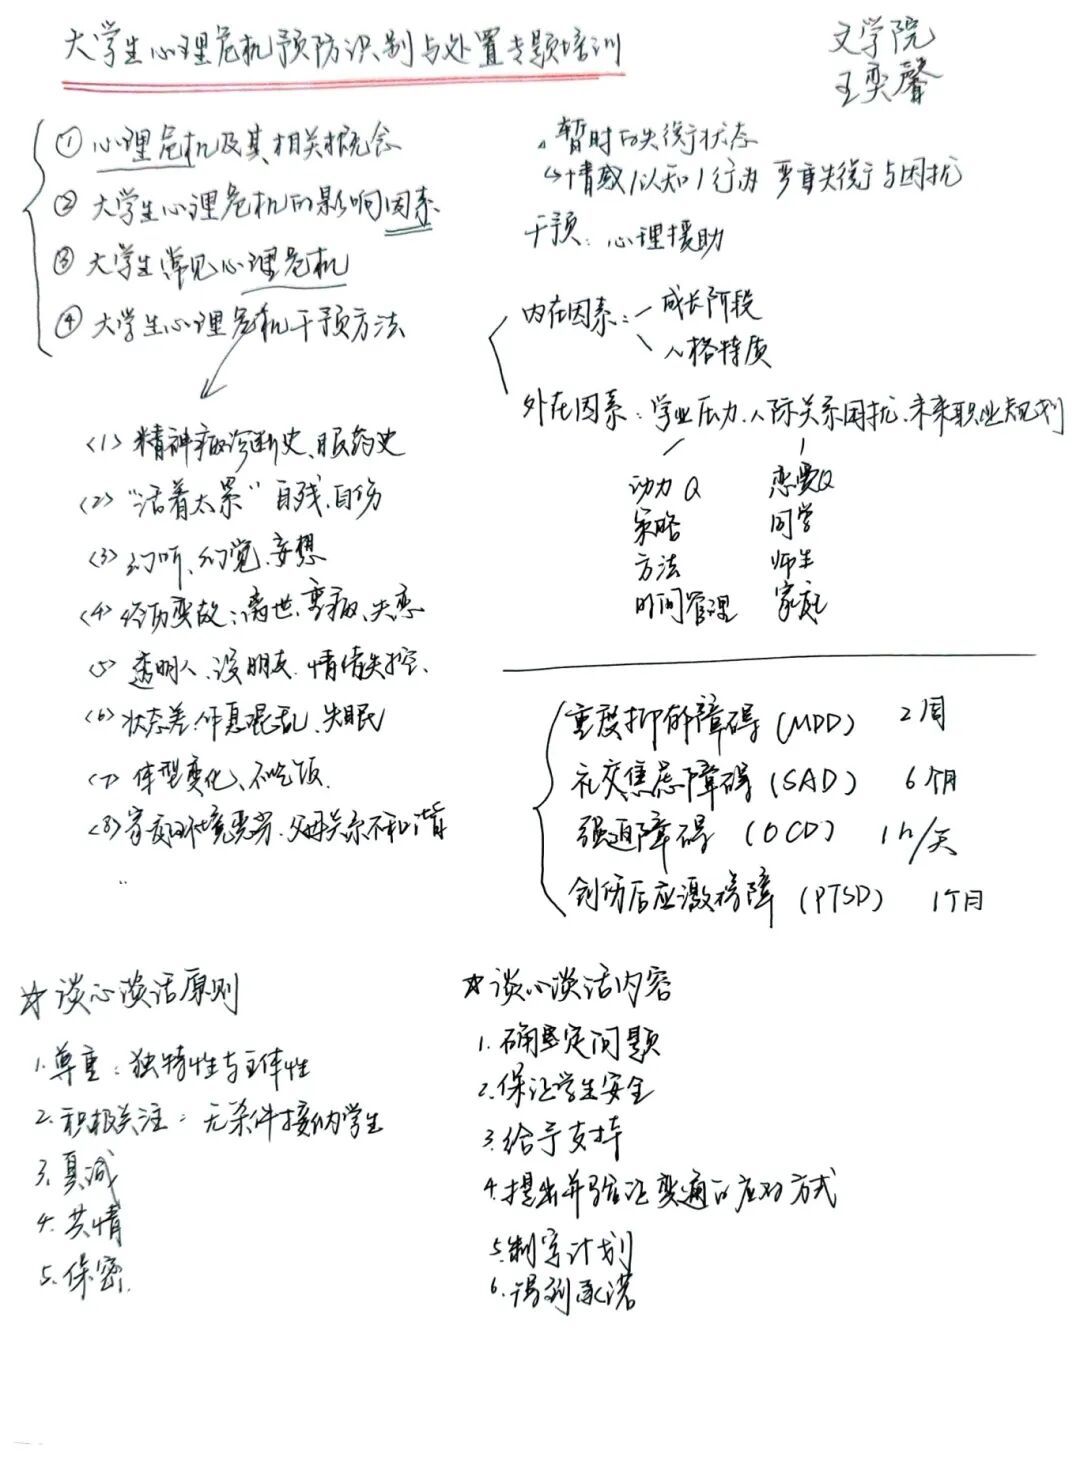 大学生心理危机预防识别与处置专题培训
文学院
王奕馨
① 心理危机及其相关概念
② 大学生心理危机的影响因素
③ 大学生常见心理危机
④ 大学生心理危机干预方法
暂时的失衡状态
情感/认知/行为 严重失衡与困扰
干预：心理援助
内在因素：成长阶段
人格特质
外在因素：学业压力、人际关系困扰、未来职业规划
动力Q 恋爱Q
策略 同学
方法 师生
时间管理 家庭
(1) 精神病诊断史、服药史
(2) “活着太累” 自残、自伤
(3) 幻听、幻觉、妄想
(4) 经历变故：离世、重病、失恋
(5) 透明人、没朋友、情绪失控、
(6) 状态差、作息混乱、失眠
(7) 体型变化、不吃饭.
(8) 家庭环境恶劣、父母关系不和谐
..
重度抑郁障碍 (MDD) 2周
社交焦虑障碍 (SAD) 6个月
强迫障碍 (OCD) 1h/天
创伤后应激障 (PTSD) 1个月
☆ 谈心谈话原则
1. 尊重：独特性与主体性
2. 积极关注：无条件接纳学生
3. 真诚
4. 共情
5. 保密.
☆ 谈心谈话内容
1. 确定问题
2. 保证学生安全
3. 给予支持
4. 提出并验证变通的应对方式
5. 制定计划
6. 得到承诺